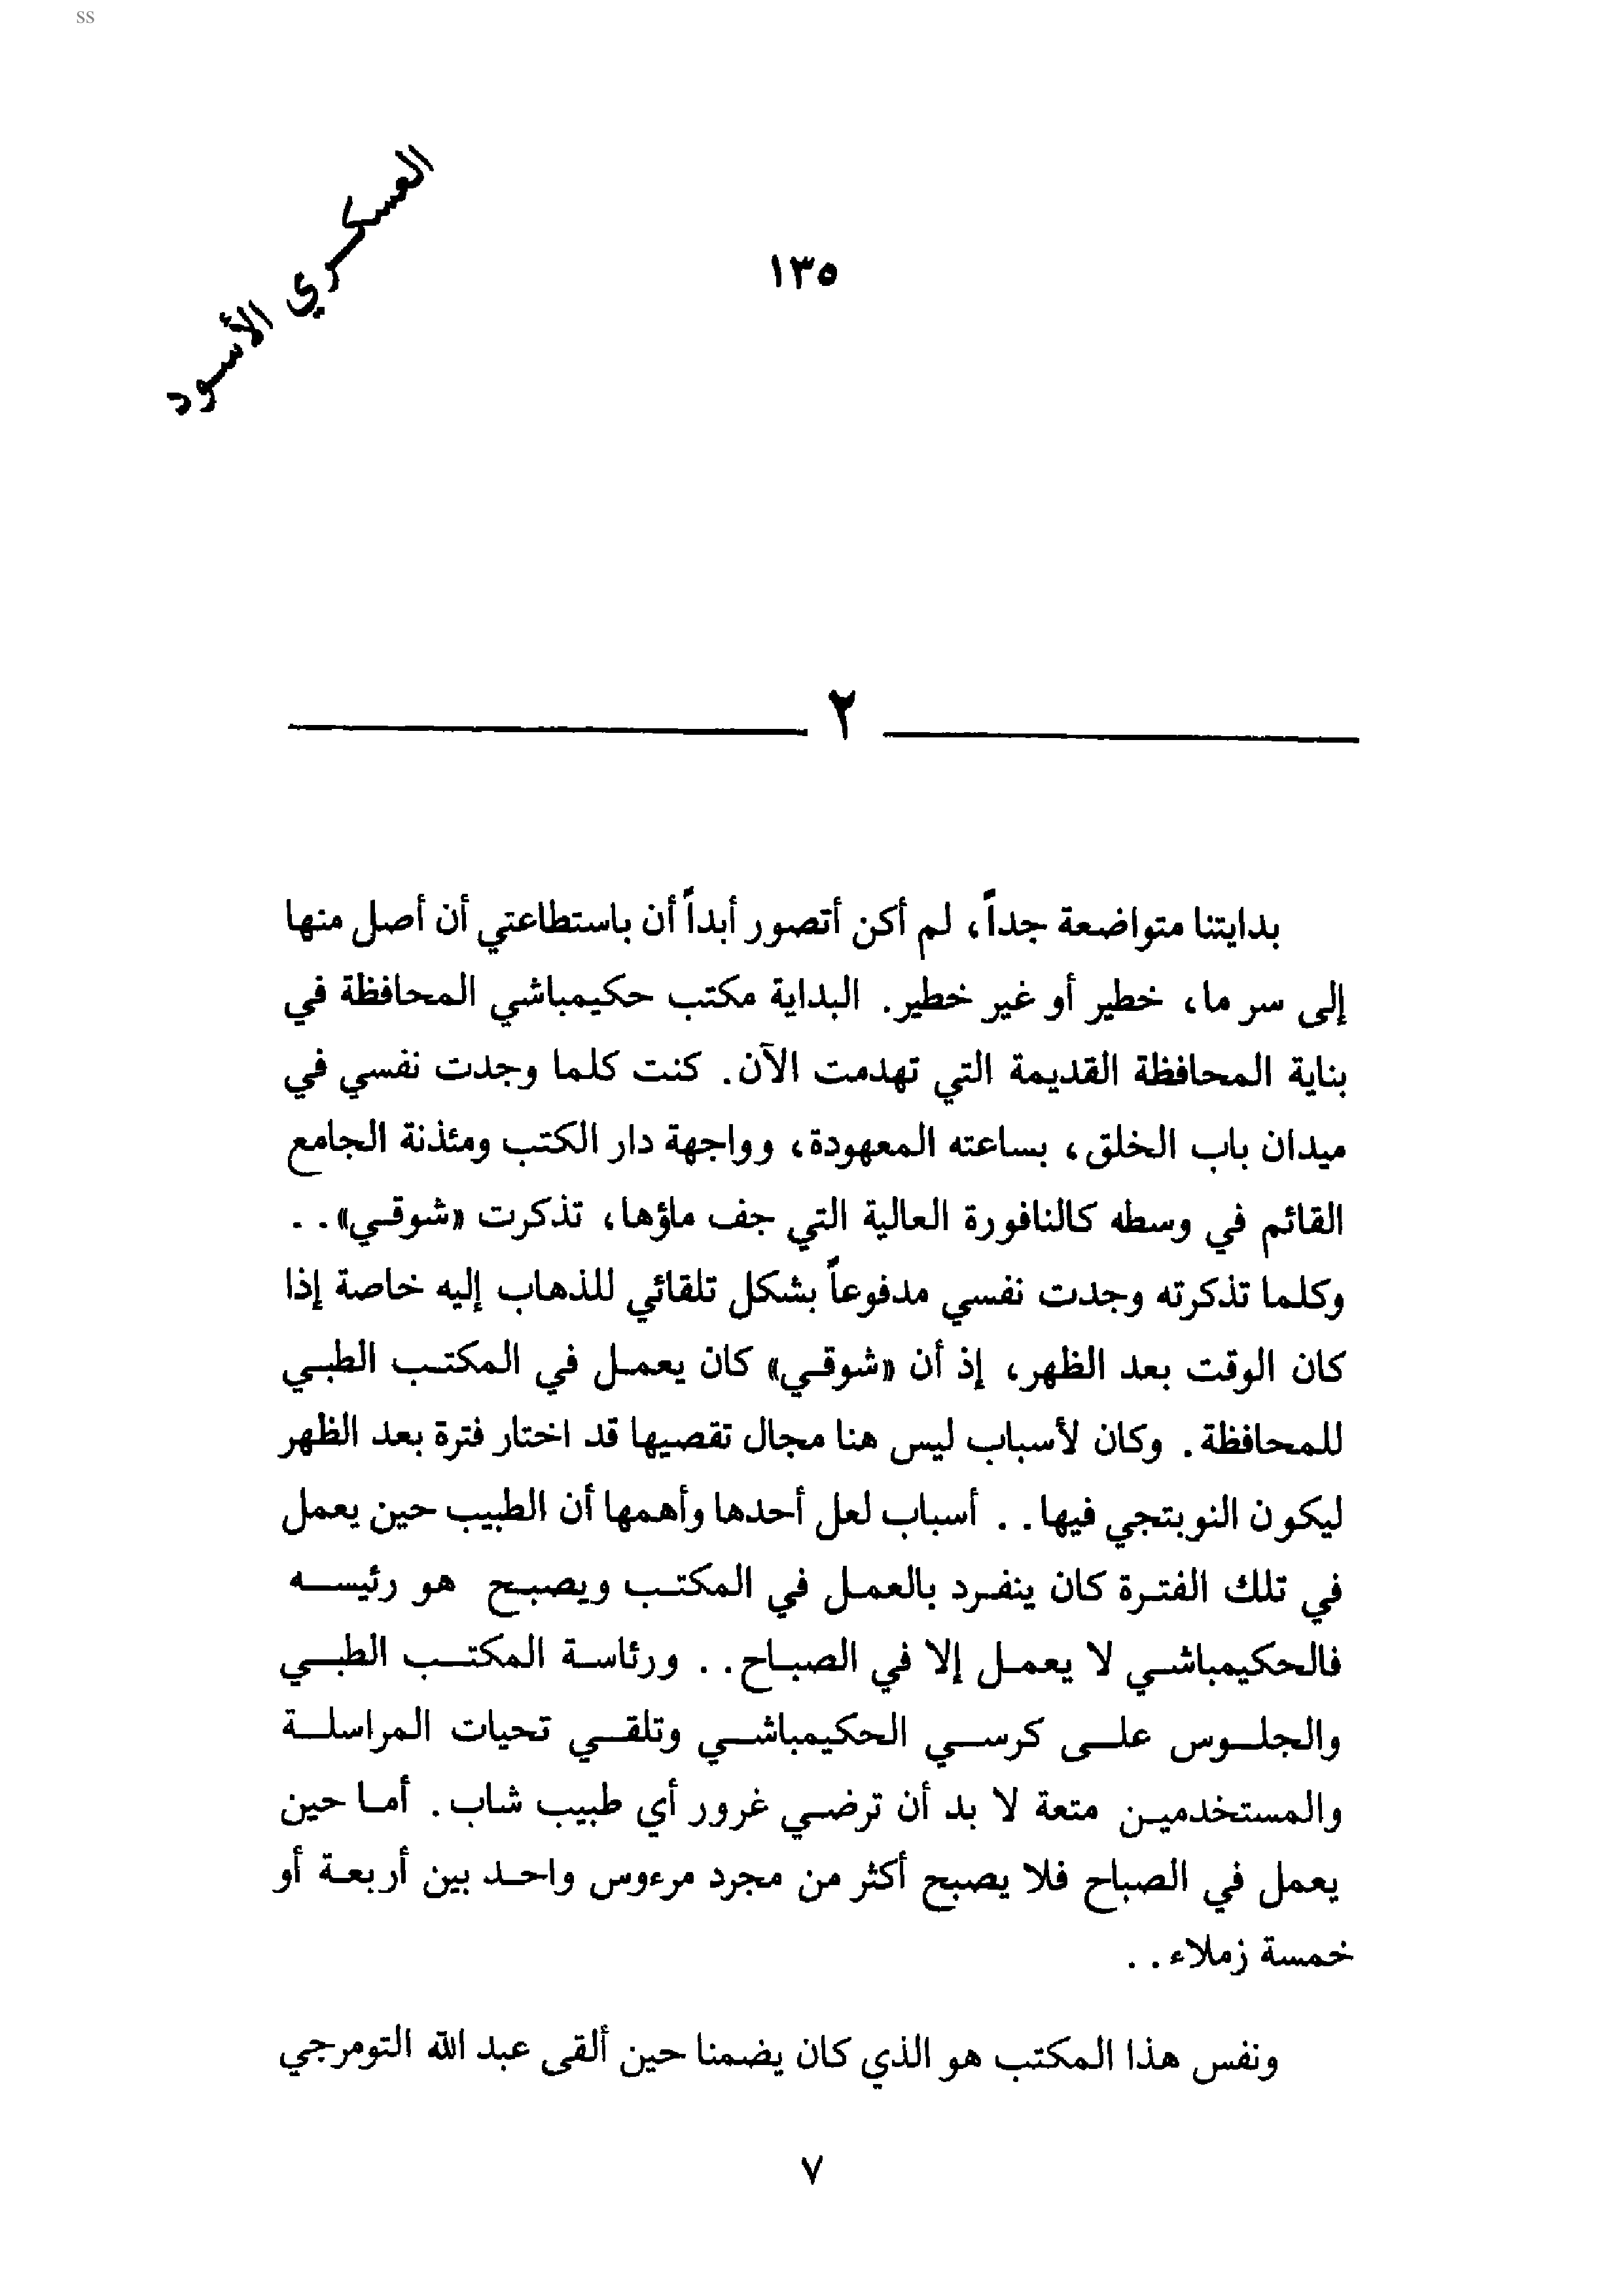 ss
العسكري الأسود
١٣٥
٢
بدايتنا متواضعة جداً، لم أكن أتصور أبداً أن باستطاعتي أن أصل منها
إلى سر ما، خطير أو غير خطير. البداية مكتب حكيمباشي المحافظة في
بناية المحافظة القديمة التي تهدمت الآن. كنت كلما وجدت نفسي في
ميدان باب الخلق، بساعته المعهودة، وواجهة دار الكتب ومئذنة الجامع
القائم في وسطه كالنافورة العالية التي جف ماؤها، تذكرت «شوقي»..
وكلما تذكرته وجدت نفسي مدفوعاً بشكل تلقائي للذهاب إليه خاصة إذا
كان الوقت بعد الظهر، إذ أن «شوقي» كان يعمل في المكتب الطبي
للمحافظة. وكان لأسباب ليس هنا مجال تقصيها قد اختار فترة بعد الظهر
ليكون النوبتجي فيها.. أسباب لعل أحدها وأهمها أن الطبيب حين يعمل
في تلك الفترة كان ينفرد بالعمل في المكتب ويصبح هو رئيسه
فالحكيمباشي لا يعمل إلا في الصباح.. ورئاسة المكتب الطبي
والجلوس على كرسي الحكيمباشي وتلقي تحيات المراسلة
والمستخدمين متعة لا بد أن ترضي غرور أي طبيب شاب. أما حين
يعمل في الصباح فلا يصبح أكثر من مجرد مرءوس واحد بين أربعة أو
خمسة زملاء..
ونفس هذا المكتب هو الذي كان يضمنا حين ألقى عبد الله التومرجي
٧